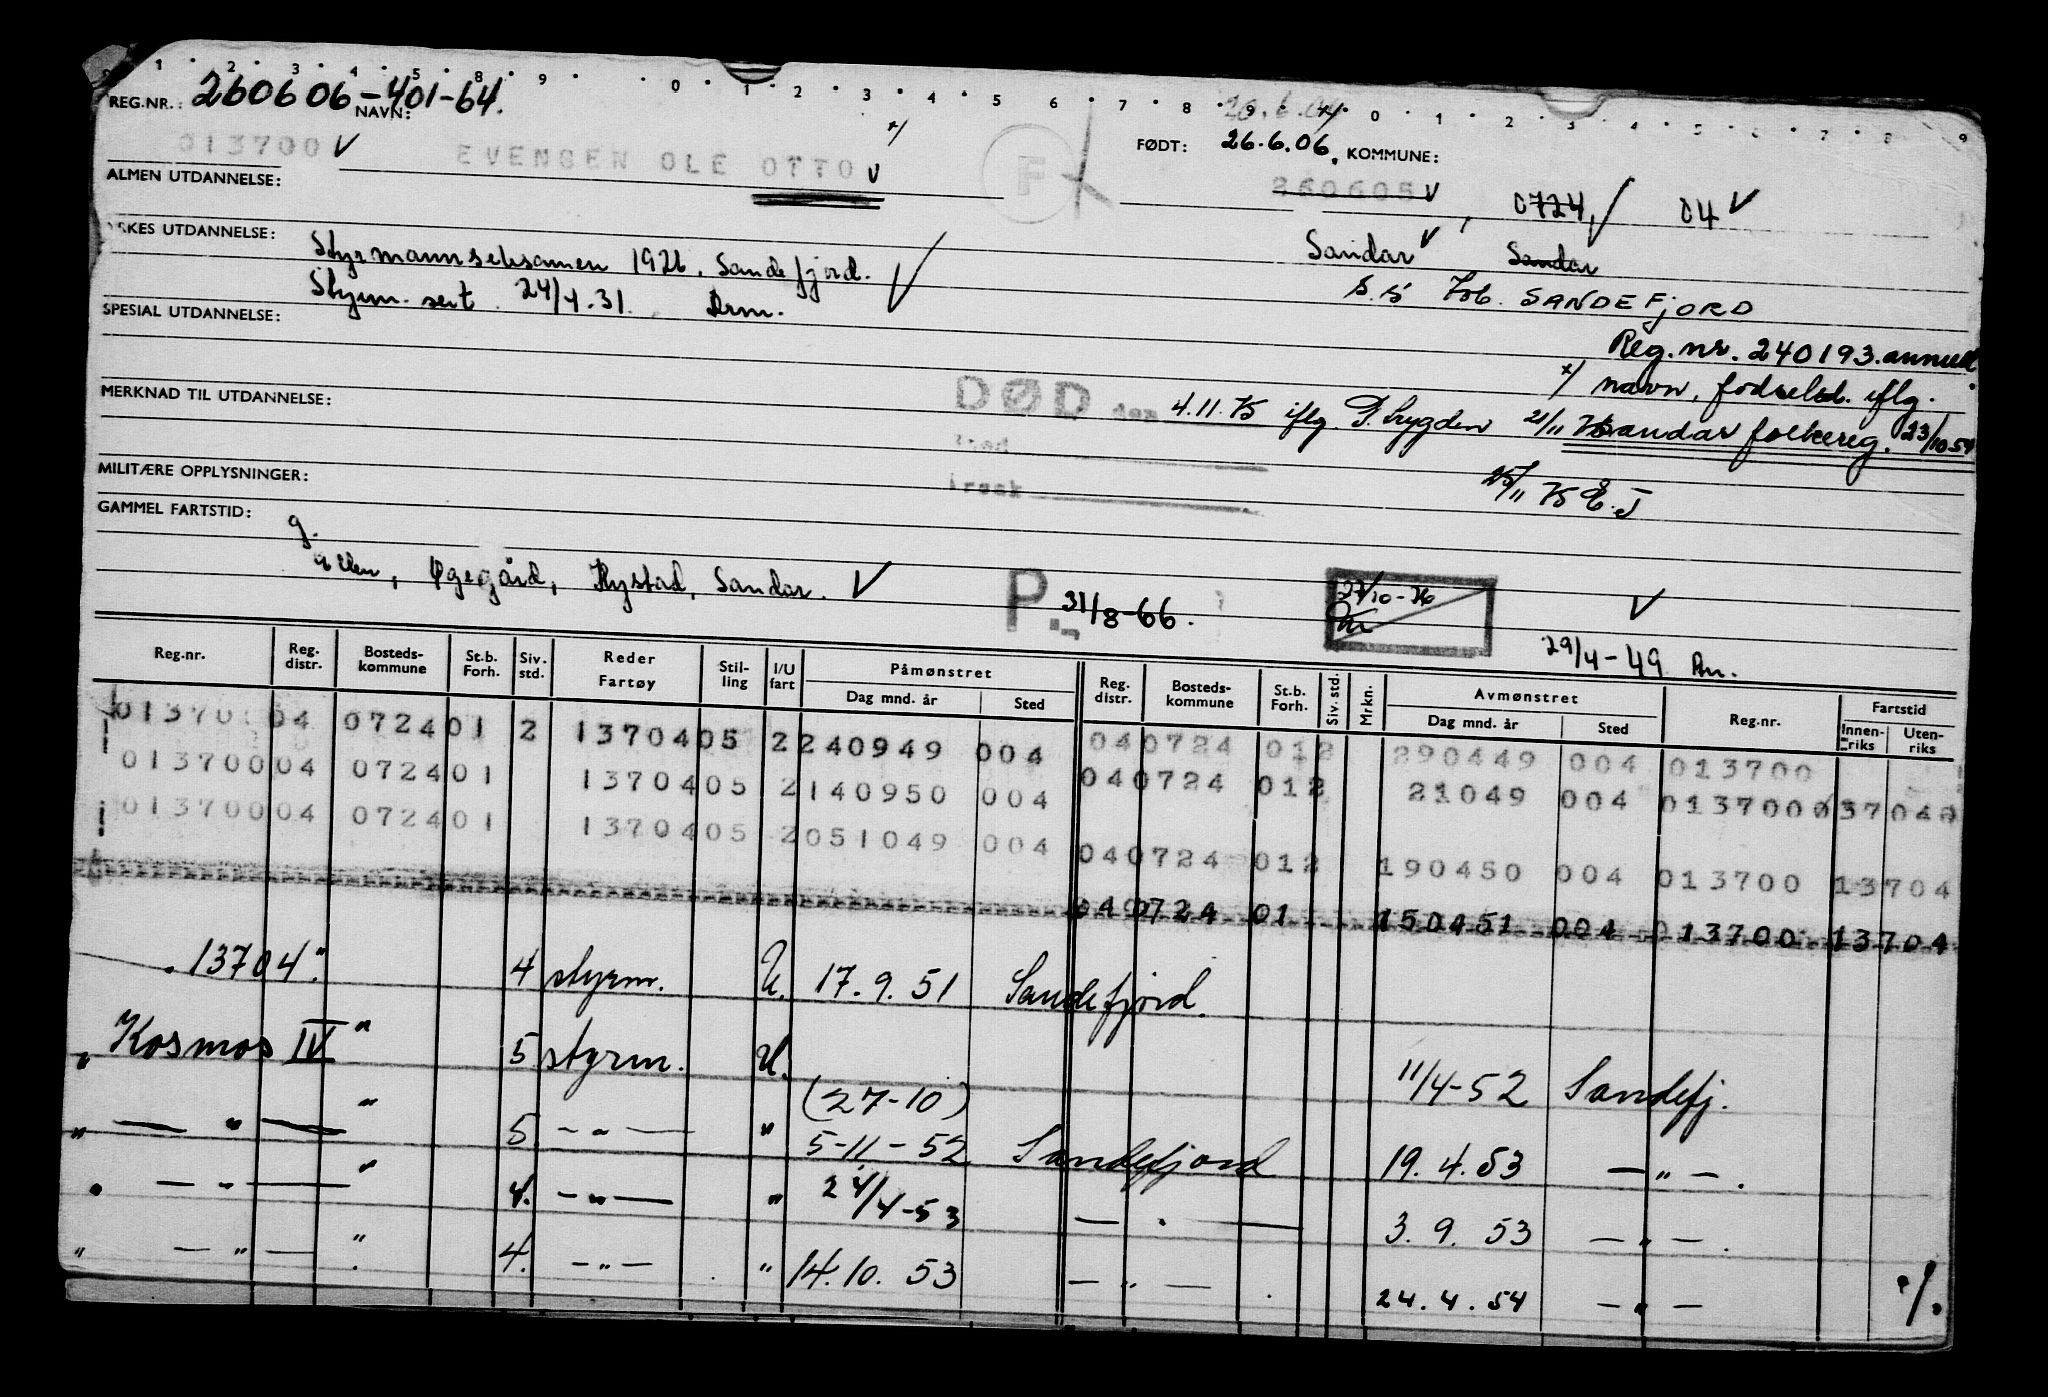 1 2 3 4 5 8 9 0 1 2 3 4 5 6 7 8 9 0 1 2 3 4 5 6 7 8 9
REG.NR.: 260606-401-64.
NAVN:
26.6.04
013700 V EVENSEN OLE OTTO V x/ F FØDT: 26.6.06. KOMMUNE:
260605 V, 0724, 04 V
ALMEN UTDANNELSE:
Sandar V Sandar
YRKES UTDANNELSE: Styrmannseksamen 1926. Sandefjord.
Styrm. sert. 24/4.31. Drm.
S.S. SANDEFJORD
SPESIAL UTDANNELSE:
Reg.nr. 240193. annul.
x/ navn, fødselsd. iflg.
MERKNAD TIL UTDANNELSE:
DØD den 4.11.75 iflg. P. Trygden 21/11 75
Sandar folkereg. 23/10 54
Sted
Årsak
MILITÆRE OPPLYSNINGER:
25/11 75 E.J
GAMMEL FARTSTID:
g.
Ellen, Øgegård, Nystad, Sandar. V
P. 31/8-66.
27/10-76
V
29/4-49
Reg.nr. Reg. distr. Bosteds-kommune St.b. Forh. Siv. std. Reder Fartøy Stil-ling I/U fart Påmønstret Dag mnd. år Sted Reg. distr. Bosteds-kommune St.b. Forh. Siv. std. Mrkn. Avmønstret Dag mnd. år Sted Reg.nr. Fartstid Innen-riks Uten-riks
01370 04 0724 01 2 13704 05 2 240949 004 04 0724 01 2 290449 004 013700
013700 04 0724 01 13704 05 2 140950 004 04 0724 01 2 21049 004 013700
013700 04 0724 01 13704 05 2 051049 004 04 0724 01 2 190450 004 013700 13704
04 0724 01 150451 004 013700 13704
"13704" 4 styrm. U. 17.9.51 Sandefjord.
"Kosmos IV" 5 styrm. U. 11/4-52 Sandefj.
(27-10)
" — " — " 5. — " — " 5-11-52 Sandefjord 19.4.53 — " —.
" — " — " 4. — " — " 24/4-53 — " — 3.9.53 — " —.
" — " — " 4. — " — " 14.10.53 — " — 24.4.54 — " —
./.